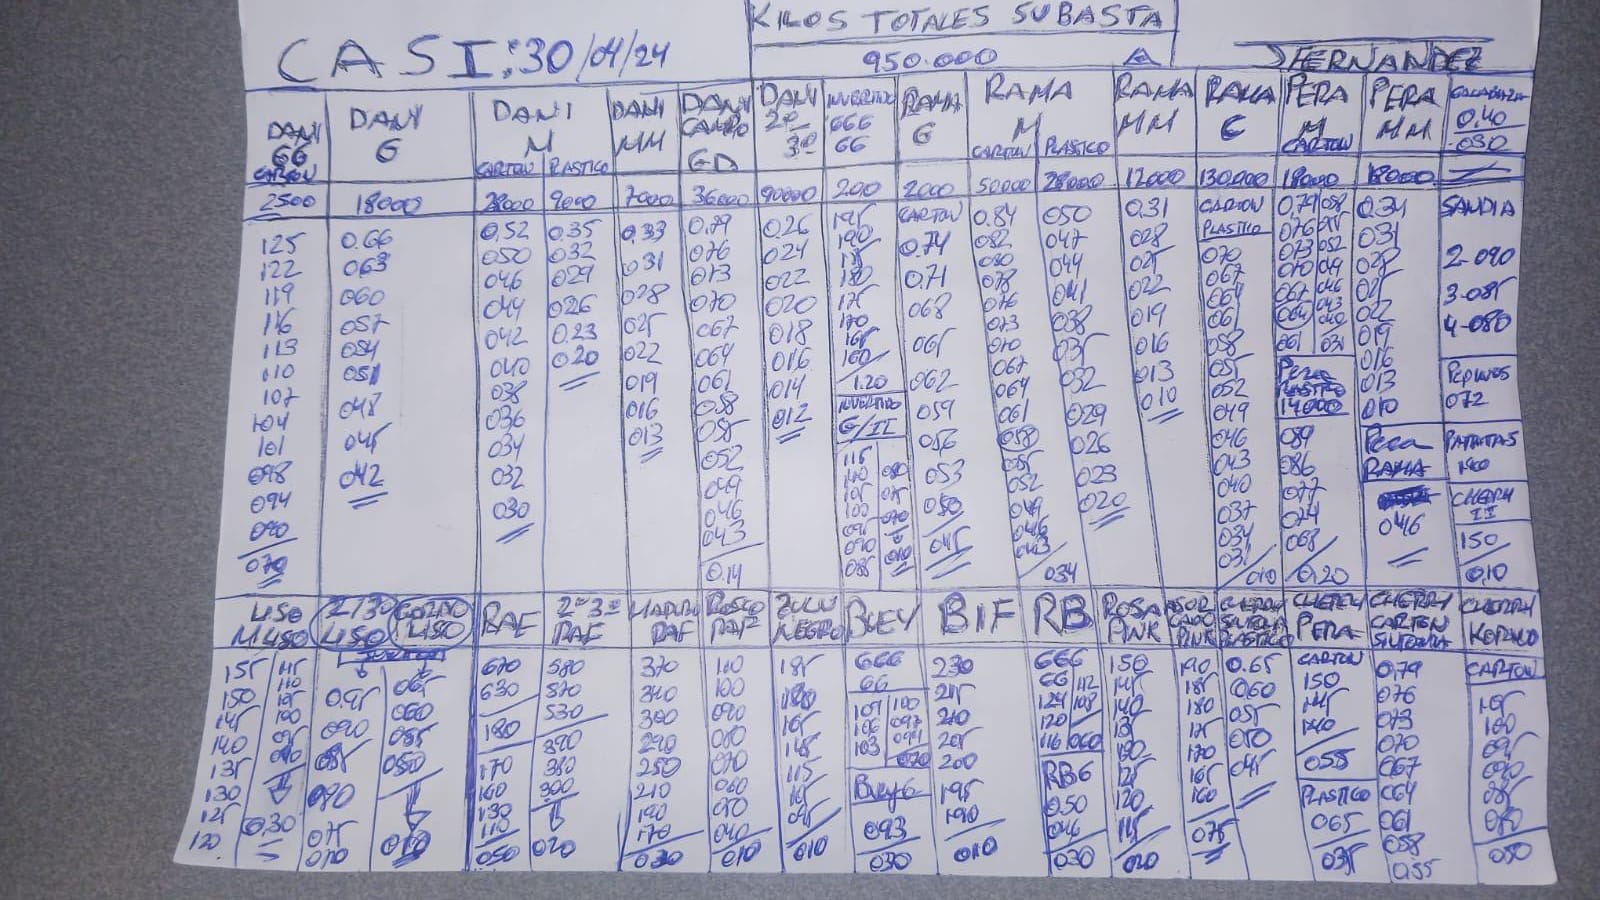 KILOS TOTALES SUBASTA
CASI: 30/04/24
950.000
JFERNANDEZ
DANI GG CARTON
DANI G
DANI M
CARTON PLASTICO
DANI MM
DANI CAMPO GD
DANI 2ª 3ª
INVERTIDO 666 66
RAMA G
RAMA M
CARTON PLASTICO
RAMA MM
RAMA C
PERA M CARTON
PERA MM
CALABAZA 0,40 030
2500 18000 28000 9000 7000 36000 90000 200 2000 50000 28000 12000 130.000 18000 18000
125 122 119 116 113 110 107 104 101 098 094 090 070
0.66 063 060 057 054 051 048 045 042
0,52 050 046 044 042 040 038 036 034 032 030
0.35 032 029 026 0.23 020
0,33 031 028 025 022 019 016 013
0.79 076 073 070 067 064 061 058 055 052 049 046 043 0.14
0,26 024 022 020 018 016 014 012
195 190 185 180 175 170 165 160 1.20
INVERTIDO G/II
115 110 105 100 095 090 085
080 075 070 010
CARTON
0.74 0.71 068 065 062 059 056 053 050 045
0.84 082 080 078 076 073 070 067 064 061 058 055 052 049 046 043 034
050 047 044 041 038 035 032 029 026 023 020
0.31 028 025 022 019 016 013 010
CARTON
PLASTICO
070 067 064 061 058 055 052 049 046 043 040 037 034 031 010
0,79 076 073 070 067 064 061
058 055 052 049 046 043 040 034
PERA PLASTICO 14000
089 086 077 074 068 0,20
0.34 031 028 025 022 019 016 013 010
PERA RAMA
046
SANDIA
2-090
3-085
4-080
PEPINOS
072
PATATAS
CHERRY II
150
0,10
LISO M LISO
2ª/3ª LISO
GORDO LISO
RAF
2ª 3ª RAF
MARRON RAF
ROSCO RAF
ZULU NEGRO
BUEY
BIF
RB
ROSA PINK
ASURCADO PINK
CHERRY SINTONIA PLASTICO
CHERRY PERA
CHERRY CARTON SINTONIA
CHERRY KOPALCO
155 150 145 140 135 130 125 120
115 110 105 100 095 090 0,30
0,95 090 085 080 075 070
065 060 055 050 010
670 630 180 170 160 130 110 050
580 570 530 390 350 300 020
370 340 300 290 250 210 190 170 020
110 100 090 080 070 060 050 040 010
185 180 165 145 115 105 095 010
666
66
109 106 103
100 097 094 070
BUEY G
093
030
230 215 210 205 200 195 190 010
666
66 112
124 108
120
116 060
RBG
0.50
046
030
150 145 140 135 130 125 120 115 020
190 185 180 175 170 165 160 075
0.65 060 055 050 045
CARTON
150
145
140
055
PLASTICO
065
035
0,79 076 073 070 067 064 061 058 0,55
CARTON
105
100
095
090
085
080
050